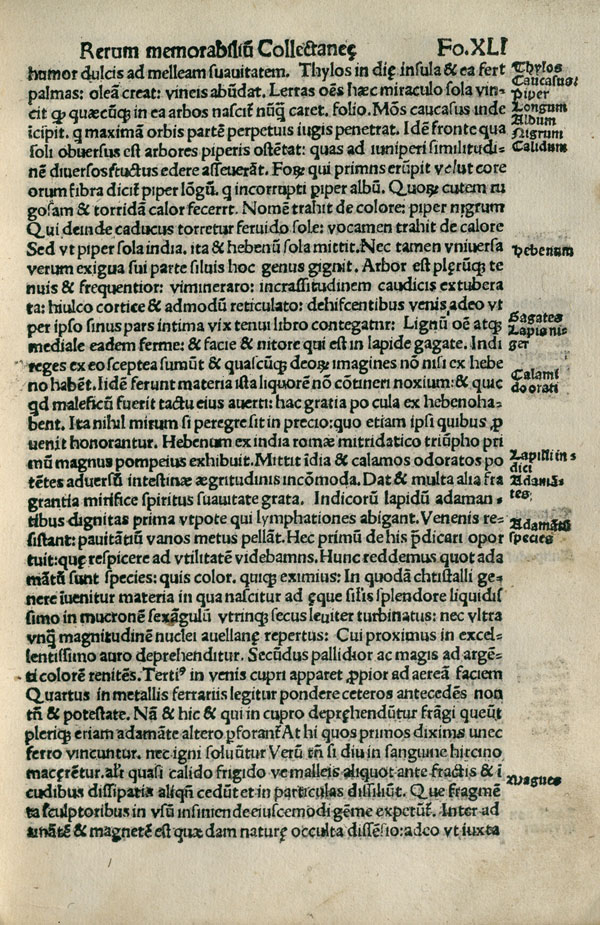 Rerum memorabiliū Collectaneę Fo.XLI
humor dulcis ad melleam suauitatem. Thylos in dię insula & ea fert
palmas: oleā creat: vineis abūdat. Lerras oēs hęc miraculo sola vin-
cit ꝙ quæcūꝙ in ea arbos nascit̄ nūꝗ caret. folio. Mōs caucasus inde
īcipit. q maxima orbis partē perpetuis iugis penetrat. Idē fronte qua
soli obuersus est arbores piperis ostētat: quas ad iuniperi similitudi-
nē diuersos fructus edere asseuerāt. Foꝝ qui primns erūpit velut core
orum fibra dicit̄ piper lōgū. q incorrupti piper albū. Quoꝝ cutem ru
gosam & torridā calor fecerit. Nomē trahit de colore: piper nigrum
Qui deinde caducus torretur feruido sole: vocamen trahit de calore
Sed vt piper sola india. ita & hebenū sola mittit. Nec tamen vniuersa
verum exigua sui parte siluis hoc genus gignit. Arbor est plęrūꝙ te
nuis & frequentior: vimineraro: incrassitudinem caudicis extubera
ta: hiulco cortice & admodū reticulato: dehiscentibus venis adeo vt
per ipso sinus pars intima vix tenui libro contegatnr: Lignū oē atꝙ
mediale eadem ferme: & facie & nitore qui est in lapide gagate. Indi
reges ex eo sceptea sumūt & quascūꝙ deoꝝ imagines nō nisi ex hebe
no habēt. Iidē ferunt materia ista liquorē nō cōtineri noxium: & quic
qd maleficū fuerit tactu eius auerti: hac gratia po cula ex hebenoha-
bent. Ita nihil mirum si peregre sit in precio: quo etiam ipsi quibus ꝓ
uenit honorantur. Hebenum ex india romæ mitridatico triūpho pri
mū magnus pompeius exhibuit. Mittit īdia & calamos odoratos po
tētes aduersū intestinæ ægritudinis incōmoda. Dat & multa alia fra
grantia mirifice spiritus suauitate grata. Indicorū lapidū adaman-
tibus dignitas prima vtpote qui lymphationes abigant. Venenis re-
sistant: pauitātiū vanos metus pellāt. Hec primū de his p̄dicari opor
tuit: quę respicere ad vtilitatē videbamns. Hunc reddemus quot ada
mātū sunt species: quis color. quiꝙ eximius: In quodā christalli ge-
nere īuenitur materia in qua nascitur ad ęque silis splendore liquidis
simo in mucronē sexāgulū vtrinꝙ secus leuiter turbinatus: nec vltra
vnꝗ magnitudinē nuclei auellanę repertus: Cui proximus in excel-
lentissimo auro deprehenditur. Secūdus pallidior ac magis ad argē-
ti colorē renitēs. Tertiꝰ in venis cupri apparet ꝓpior ad aereā faciem
Quartus in metallis ferrariis legitur pondere ceteros antecedēs non
tn̄ & potestate. Nā & hic & qui in cupro depręhendūtur frāgi queūt
pleriꝙ etiam adamāte altero ꝑforant̄ At hi quos primos diximus unec
ferro vincuntur. nec igni soluūtur Verū tn̄ si diu in sanguine hircino
macęrētur. alit̄ quasi calido frigido ve malleis aliquot ante fractis & ī
cudibus dissipatis aliqn̄ cedūt et in particulas dissiliūt. Que fragmē
ta sculptoribus in vsū insiniendeeiuscemodi gēme expetūt̄. Inter ad
amātē & magnetē est quæ dam naturę occulta dissēsio: adeo vt iuxta
Thylos
Caucasus
Piper
Longum
Album
Nigrum
Calidum
Hebenum
Gagates
Lapis ni-
ger
Calami
do orati
Lapilli in-
dici
Adamā-
tes
Adamātū
species
Magnes